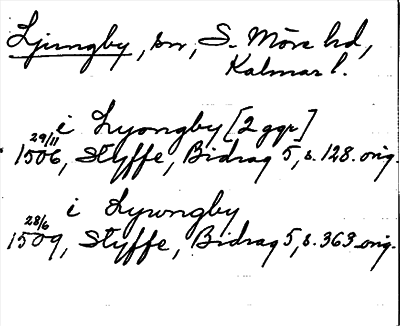 Ljungby, sn, S. Möre hd,
Kalmar l.
i Lyongby [2 ggr]
29/11 1506, Styffe, Bidrag 5, s. 128. orig.
i Lywngby
28/6 1509, Styffe, Bidrag 5, s. 363 orig.